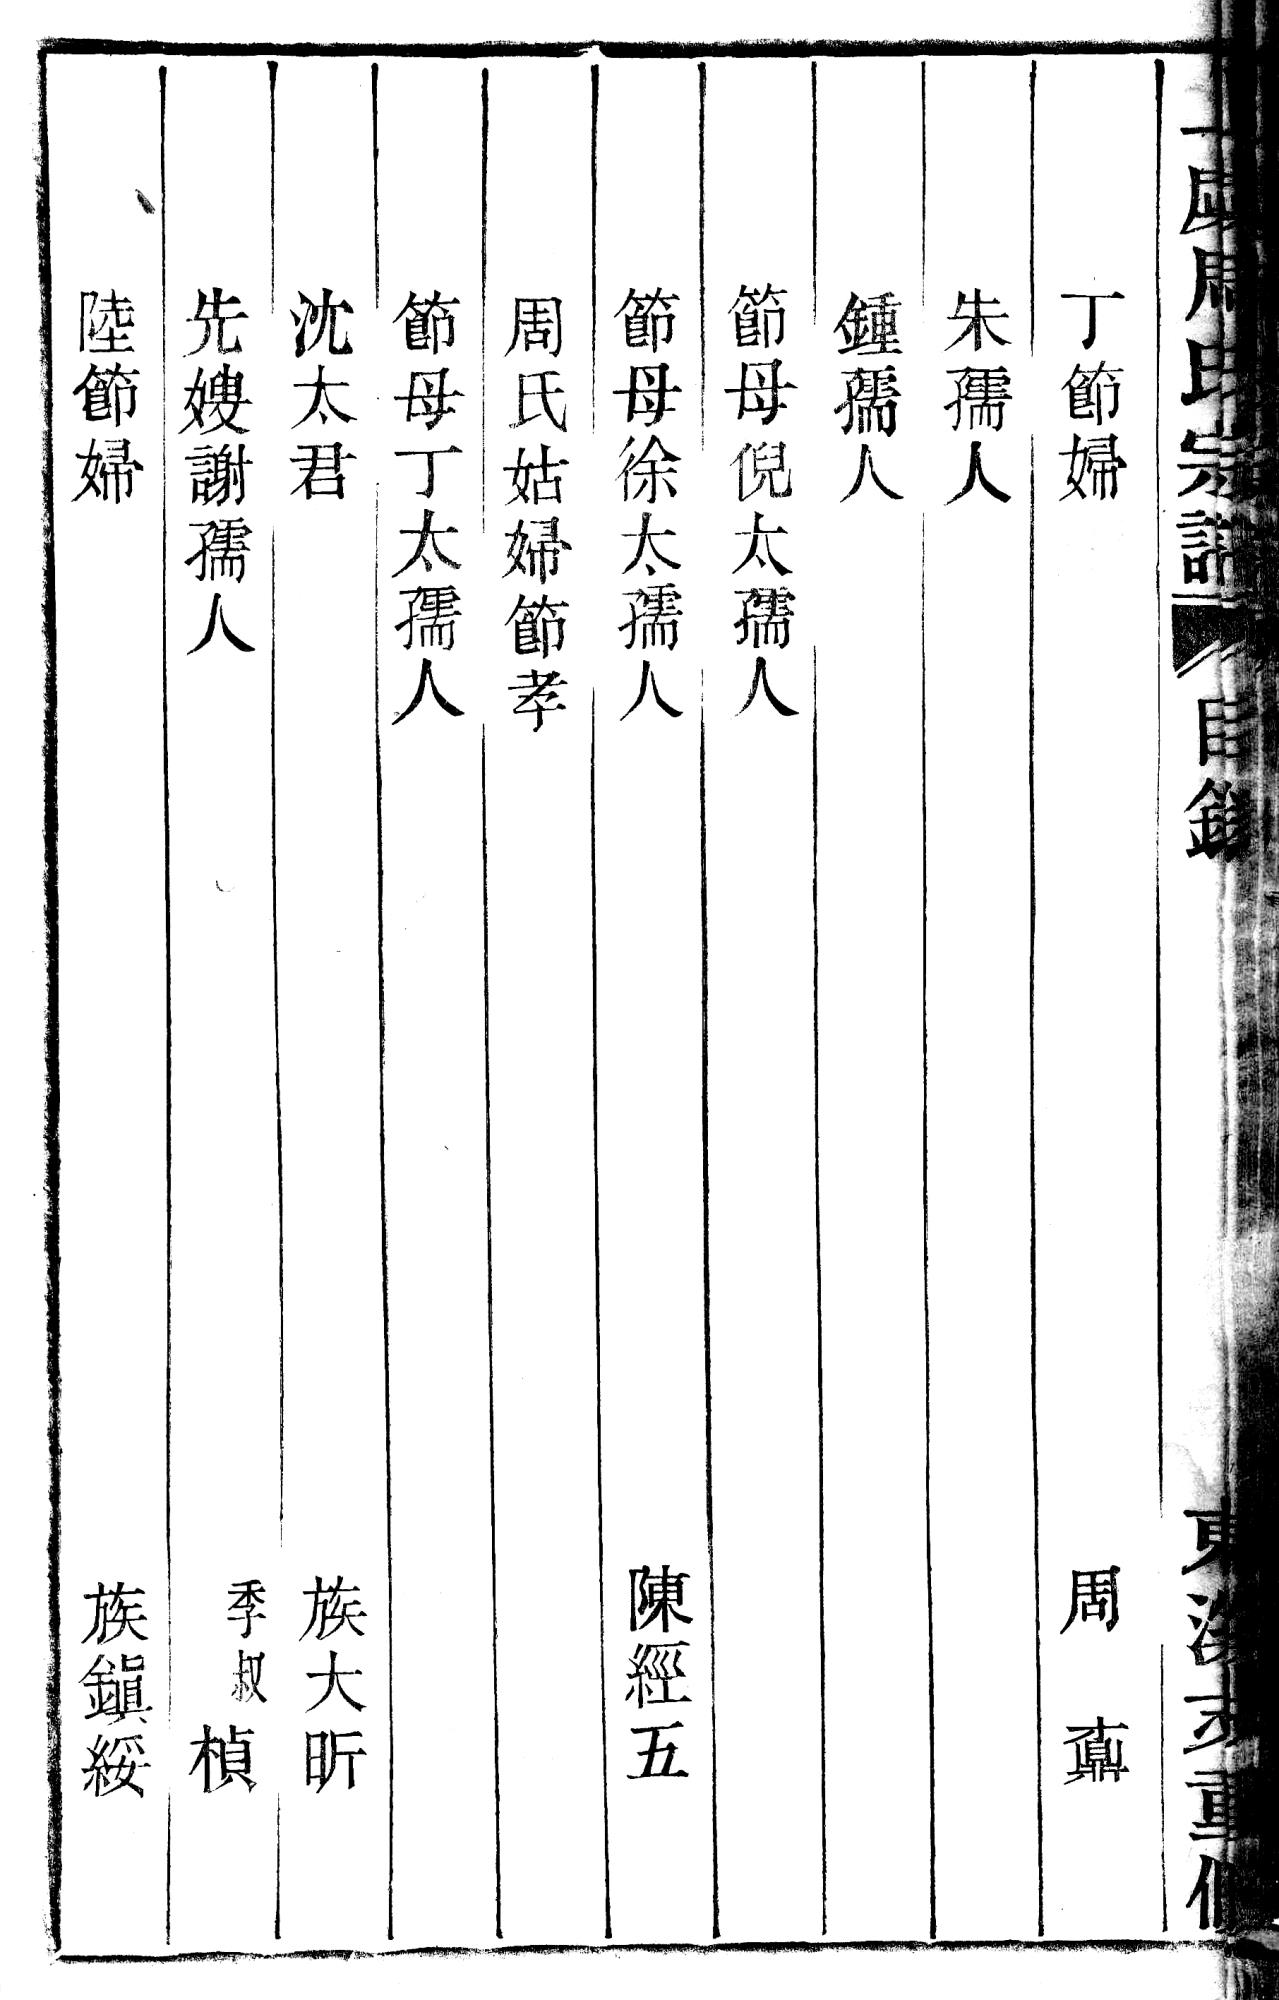 周氏宗譜 目錄 東 重修
丁節婦 周 鼒
朱孺人
鍾孺人
節母倪太孺人
節母徐太孺人 陳經五
周氏姑婦節孝
節母丁太孺人
沈太君 族大昕
先嫂謝孺人 季叔楨
陸節婦 族鎭綏